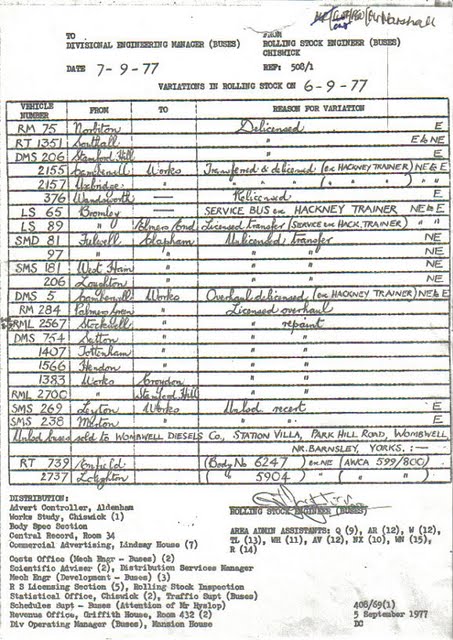 Marshall
TO FROM
DIVISIONAL ENGINEERING MANAGER (BUSES) ROLLING STOCK ENGINEER (BUSES)
CHISWICK
DATE 7-9-77 REF: 508/1
VARIATIONS IN ROLLING STOCK ON 6-9-77
VEHICLE NUMBER FROM TO REASON FOR VARIATION
RM 75 Norbiton Delicensed E
RT 1351 Southall " E & NE
DMS 206 Stamford Hill " E
2155 Camberwell Works Transferred & delicensed (ex HACKNEY TRAINER) NE & E
2157 Uxbridge " " " ( " " ) " "
376 Wandsworth — Relicensed E
LS 65 Bromley — SERVICE BUS ex HACKNEY TRAINER NE to E
LS 89 " Palmers Green Licensed transfer (SERVICE ex HACK. TRAINER) " "
SMD 81 Fulwell Clapham Unlicensed transfer NE
97 " " " NE
SMS 181 West Ham " " NE
206 Loughton " " NE
DMS 5 Camberwell Works Overhaul delicensed (ex HACKNEY TRAINER) NE & E
RM 284 Palmers Green " Licensed overhaul
RML 2567 Stockwell " " repaint
DMS 754 Sutton " " "
1407 Tottenham " " "
1566 Hendon " " "
1383 Works Croydon " "
RML 2700 " Stamford Hill " "
SMS 269 Leyton Works Unlcd recert E
SMS 238 Merton " " E
Unlcd buses sold to WOMBWELL DIESELS CO., STATION VILLA, PARK HILL ROAD, WOMBWELL,
NR. BARNSLEY, YORKS. :—
RT 739 Enfield (Body No 6247) ex NE (AWCA 599/800)
2737 Loughton ( " 5904) " ( " )
DISTRIBUTION:
Advert Controller, Aldenham
Works Study, Chiswick (1)
Body Spec Section
Central Record, Room 34
Commercial Advertising, Lindsay House (7)
Costs Office (Mech Engr - Buses) (2)
Scientific Adviser (2), Distribution Services Manager
Mech Engr (Development - Buses) (3)
R S Licensing Section (5), Rolling Stock Inspection
Statistical Office, Chiswick (2), Traffic Supt (Buses)
Schedules Supt - Buses (Attention of Mr Hyslop)
Revenue Office, Griffith House, Room 432 (2)
Div Operating Manager (Buses), Mansion House
ROLLING STOCK ENGINEER (BUSES)
AREA ADMIN ASSISTANTS: Q (9), AR (12), W (12),
TL (13), WH (11), AV (12), NX (10), WN (15),
R (14)
408/69(1)
5 September 1977
DG